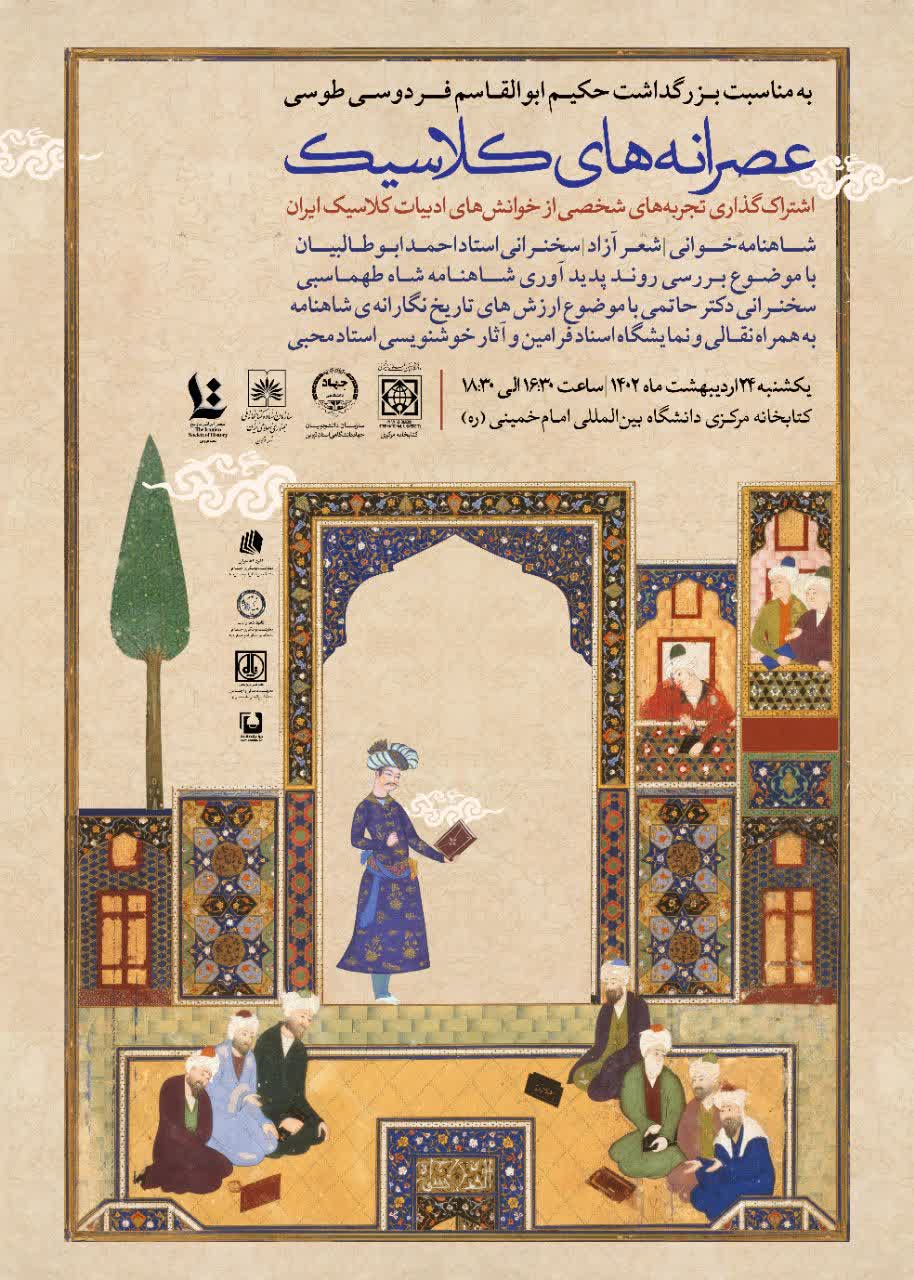 به مناسبت بزرگداشت حکیم ابوالقاسم فردوسی طوسی
عصرانه‌های کلاسیک
اشتراک‌گذاری تجربه‌های شخصی از خوانش‌های ادبیات کلاسیک ایران
شاهنامه‌خوانی | شعر آزاد | سخنرانی استاد احمد ابوطالبیان
با موضوع بررسی روند پدید آوری شاهنامه شاه طهماسبی
سخنرانی دکتر حاتمی با موضوع ارزش های تاریخ نگارانه ی شاهنامه
به همراه نقالی و نمایشگاه اسناد فرامین و آثار خوشنویسی استاد محبی
یکشنبه ۲۴ اردیبهشت ماه ۱۴۰۲ | ساعت ۱۶:۳۰ الی ۱۸:۳۰
کتابخانه مرکزی دانشگاه بین‌المللی امام‌خمینی (ره)
کتابخانه مرکزی
جهاد
دانشگاهی
سازمان دانشجویان
جهاددانشگاهی استان قزوین
سازمان اسناد و کتابخانه ملی
جمهوری اسلامی ایران
The Iranian
Society of History